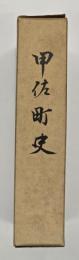 甲佐町史